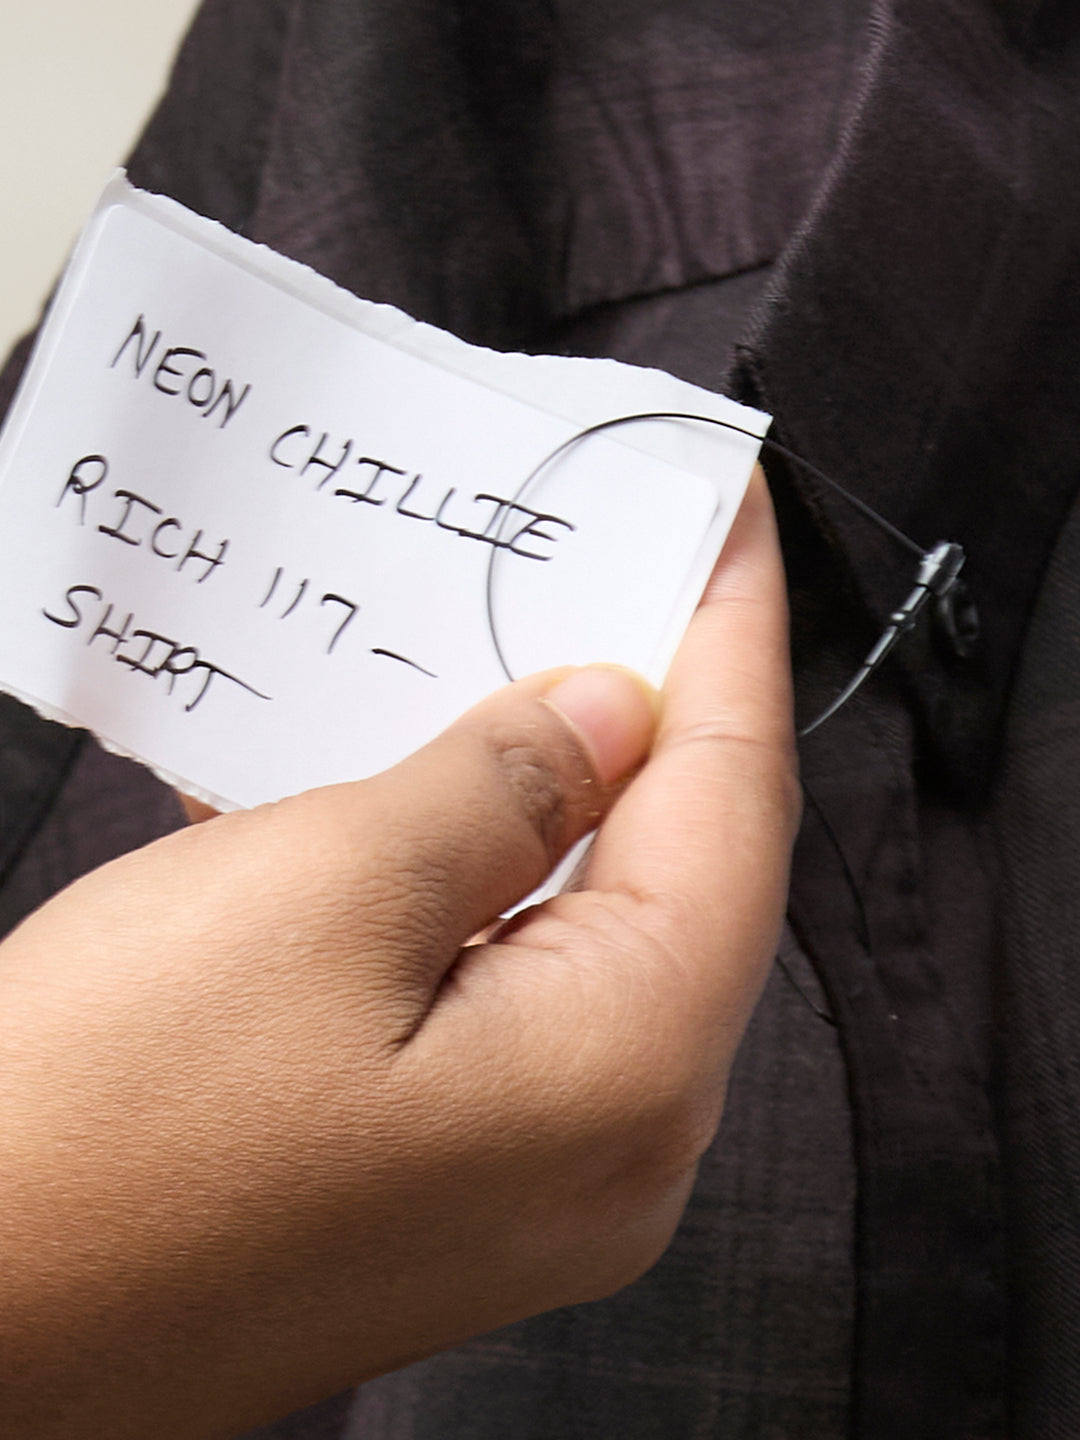 NEON CHILLIE
RICH 117-
SHIRT